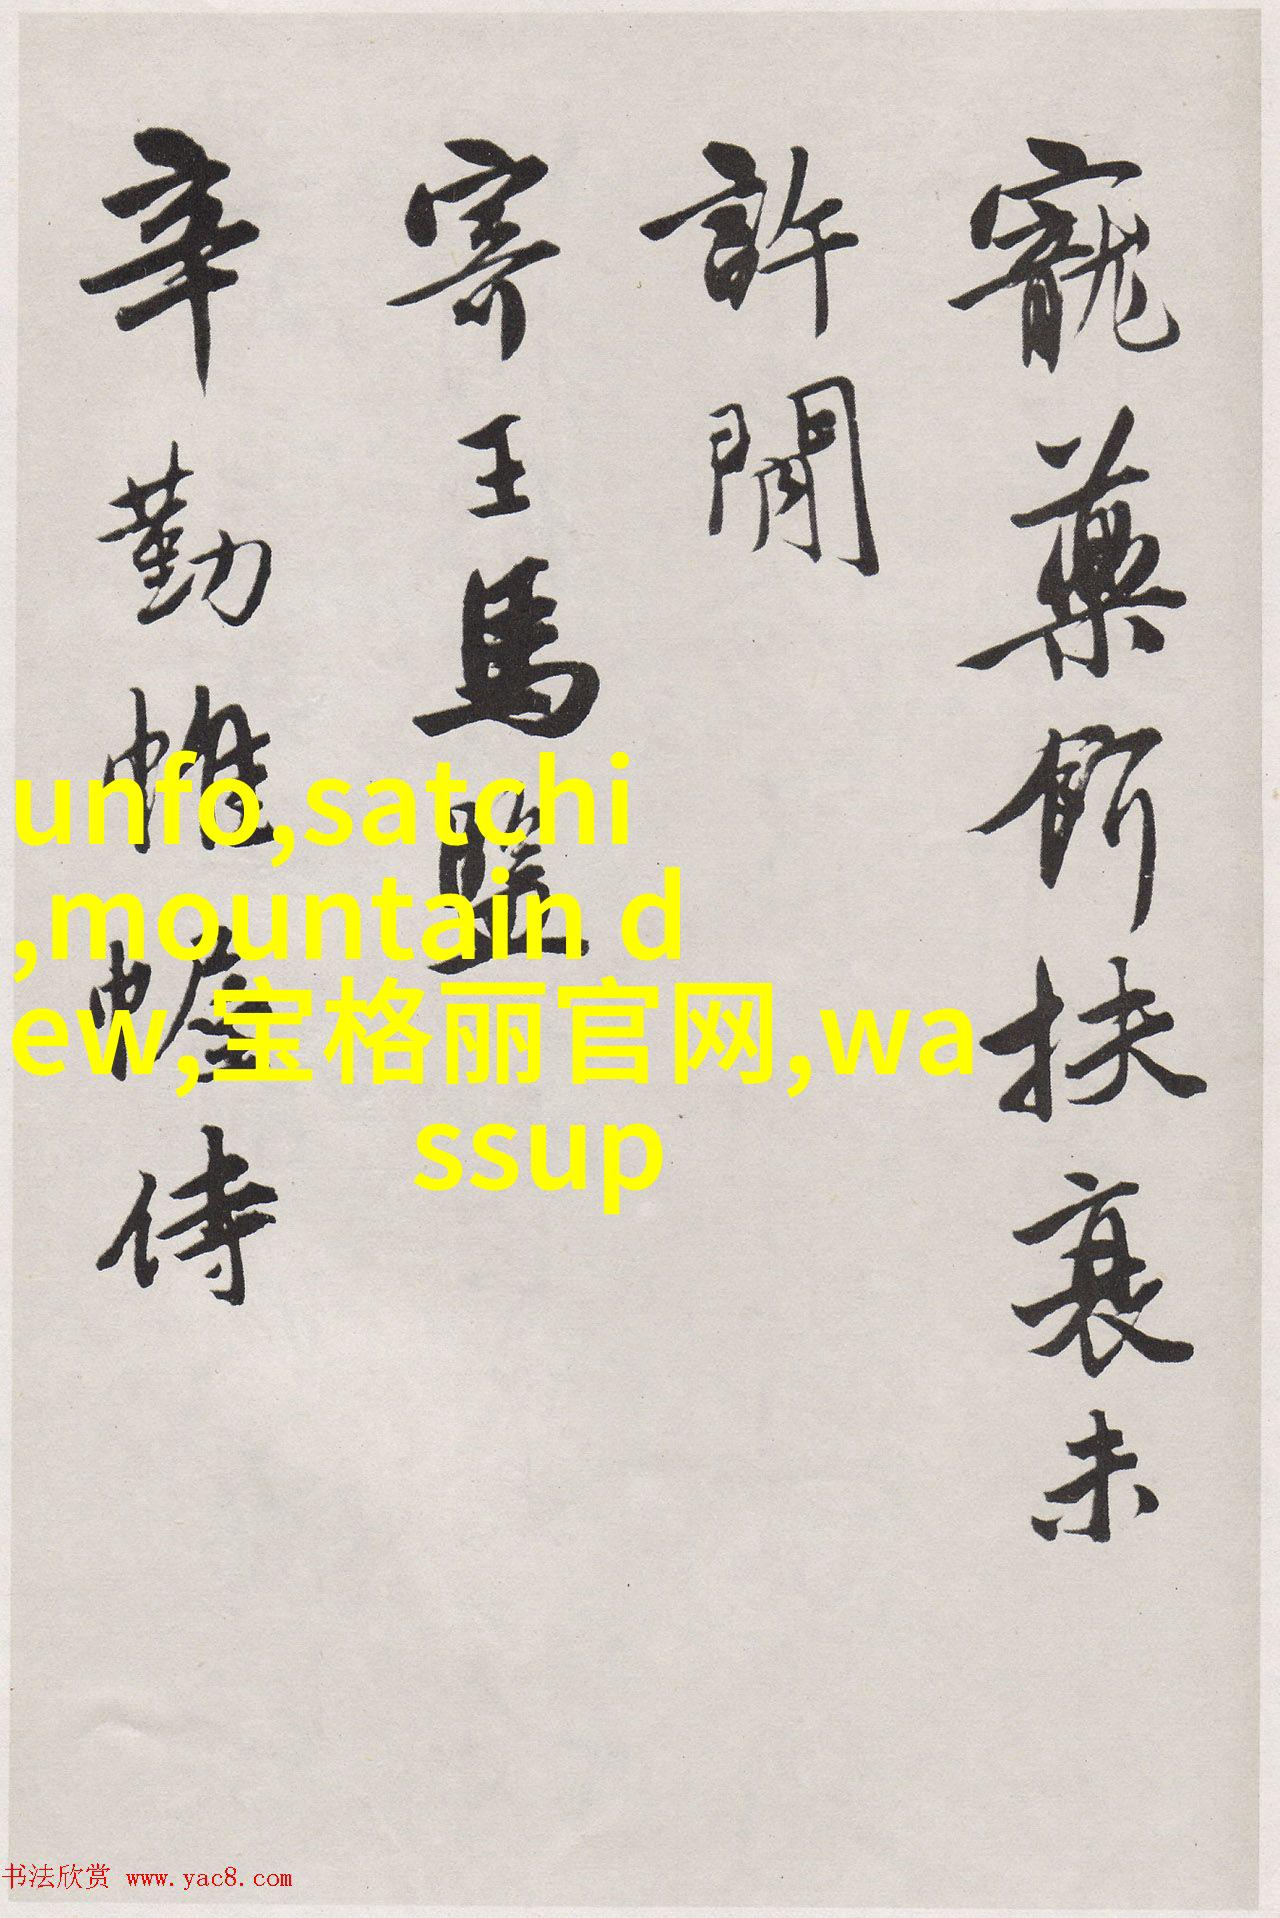 寵藥餌扶衰未
許閒
寄王馬監
辛勤帷幨侍
unfo,satchi
,mountain d
ew,宝格丽官网,wa
ssup
书法欣赏 www.yac8.com